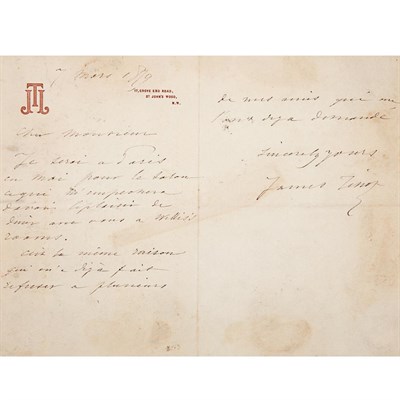 7 mars 1879
17, GROVE END ROAD,
ST JOHN'S WOOD,
N.W.
JT
Cher Monsieur
Je serai a Paris
en mai pour le salon
ce qui m'empechera
d'avoir le plaisir de
diner avec vous a Willis's
rooms.
C'est la même raison
qui m'a déjà fait
refuser a plusieurs
de mes amis qui me
l'ont déja demandé
Sincerely yours
James Tissot